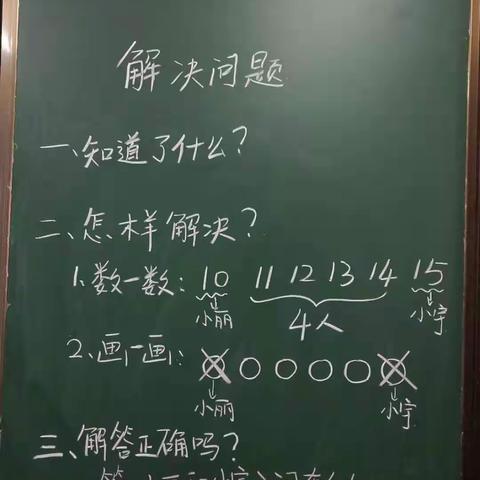 解决问题
一、知道了什么?
二、怎样解决?
1、数一数: 10 11 12 13 14 15
小丽 4人 小宇
2、画一画:
小丽 小宇
三、解答正确吗?